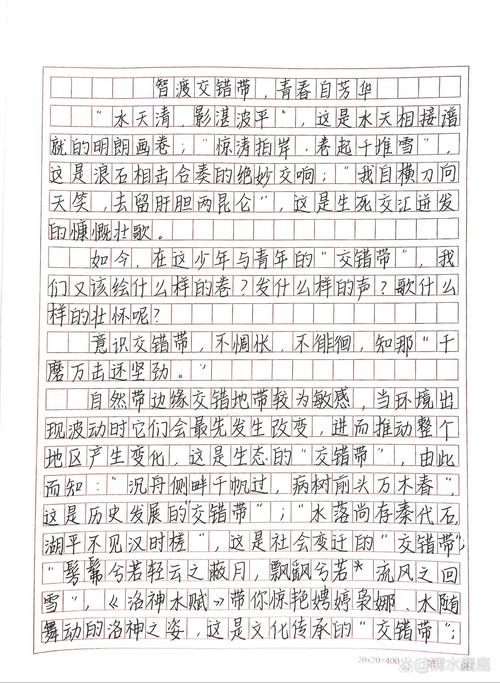 智渡交错带，青春自芳华
“水天清，影湛波平”，这是水天相接谱
就的明朗画卷；“惊涛拍岸，卷起千堆雪”，
这是浪石相击合奏的绝妙交响；“我自横刀向
天笑，去留肝胆两昆仑”，这是生死交汇迸发
的慷慨壮歌。
如今，在这少年与青年的“交错带”，我
们又该绘什么样的卷？发什么样的声？歌什么
样的壮怀呢？
意识交错带，不惆怅，不徘徊，知那“千
磨万击还坚劲。”
自然带边缘交错地带较为敏感，当环境出
现波动时它们会最先发生改变，进而推动整个
地区产生变化，这是生态的“交错带”，由此
而知：“沉舟侧畔千帆过，病树前头万木春”，
这是历史发展的“交错带”；“水落尚存秦代石，
湖平不见汉时槎”，这是社会变迁的“交错带”；
“髣髴兮若轻云之蔽月，飘飖兮若*流风之回
雪”，《洛神水赋》带你惊艳娉婷袅娜、水随
舞动的洛神之姿，这是文化传承的“交错带”；
20×20=400